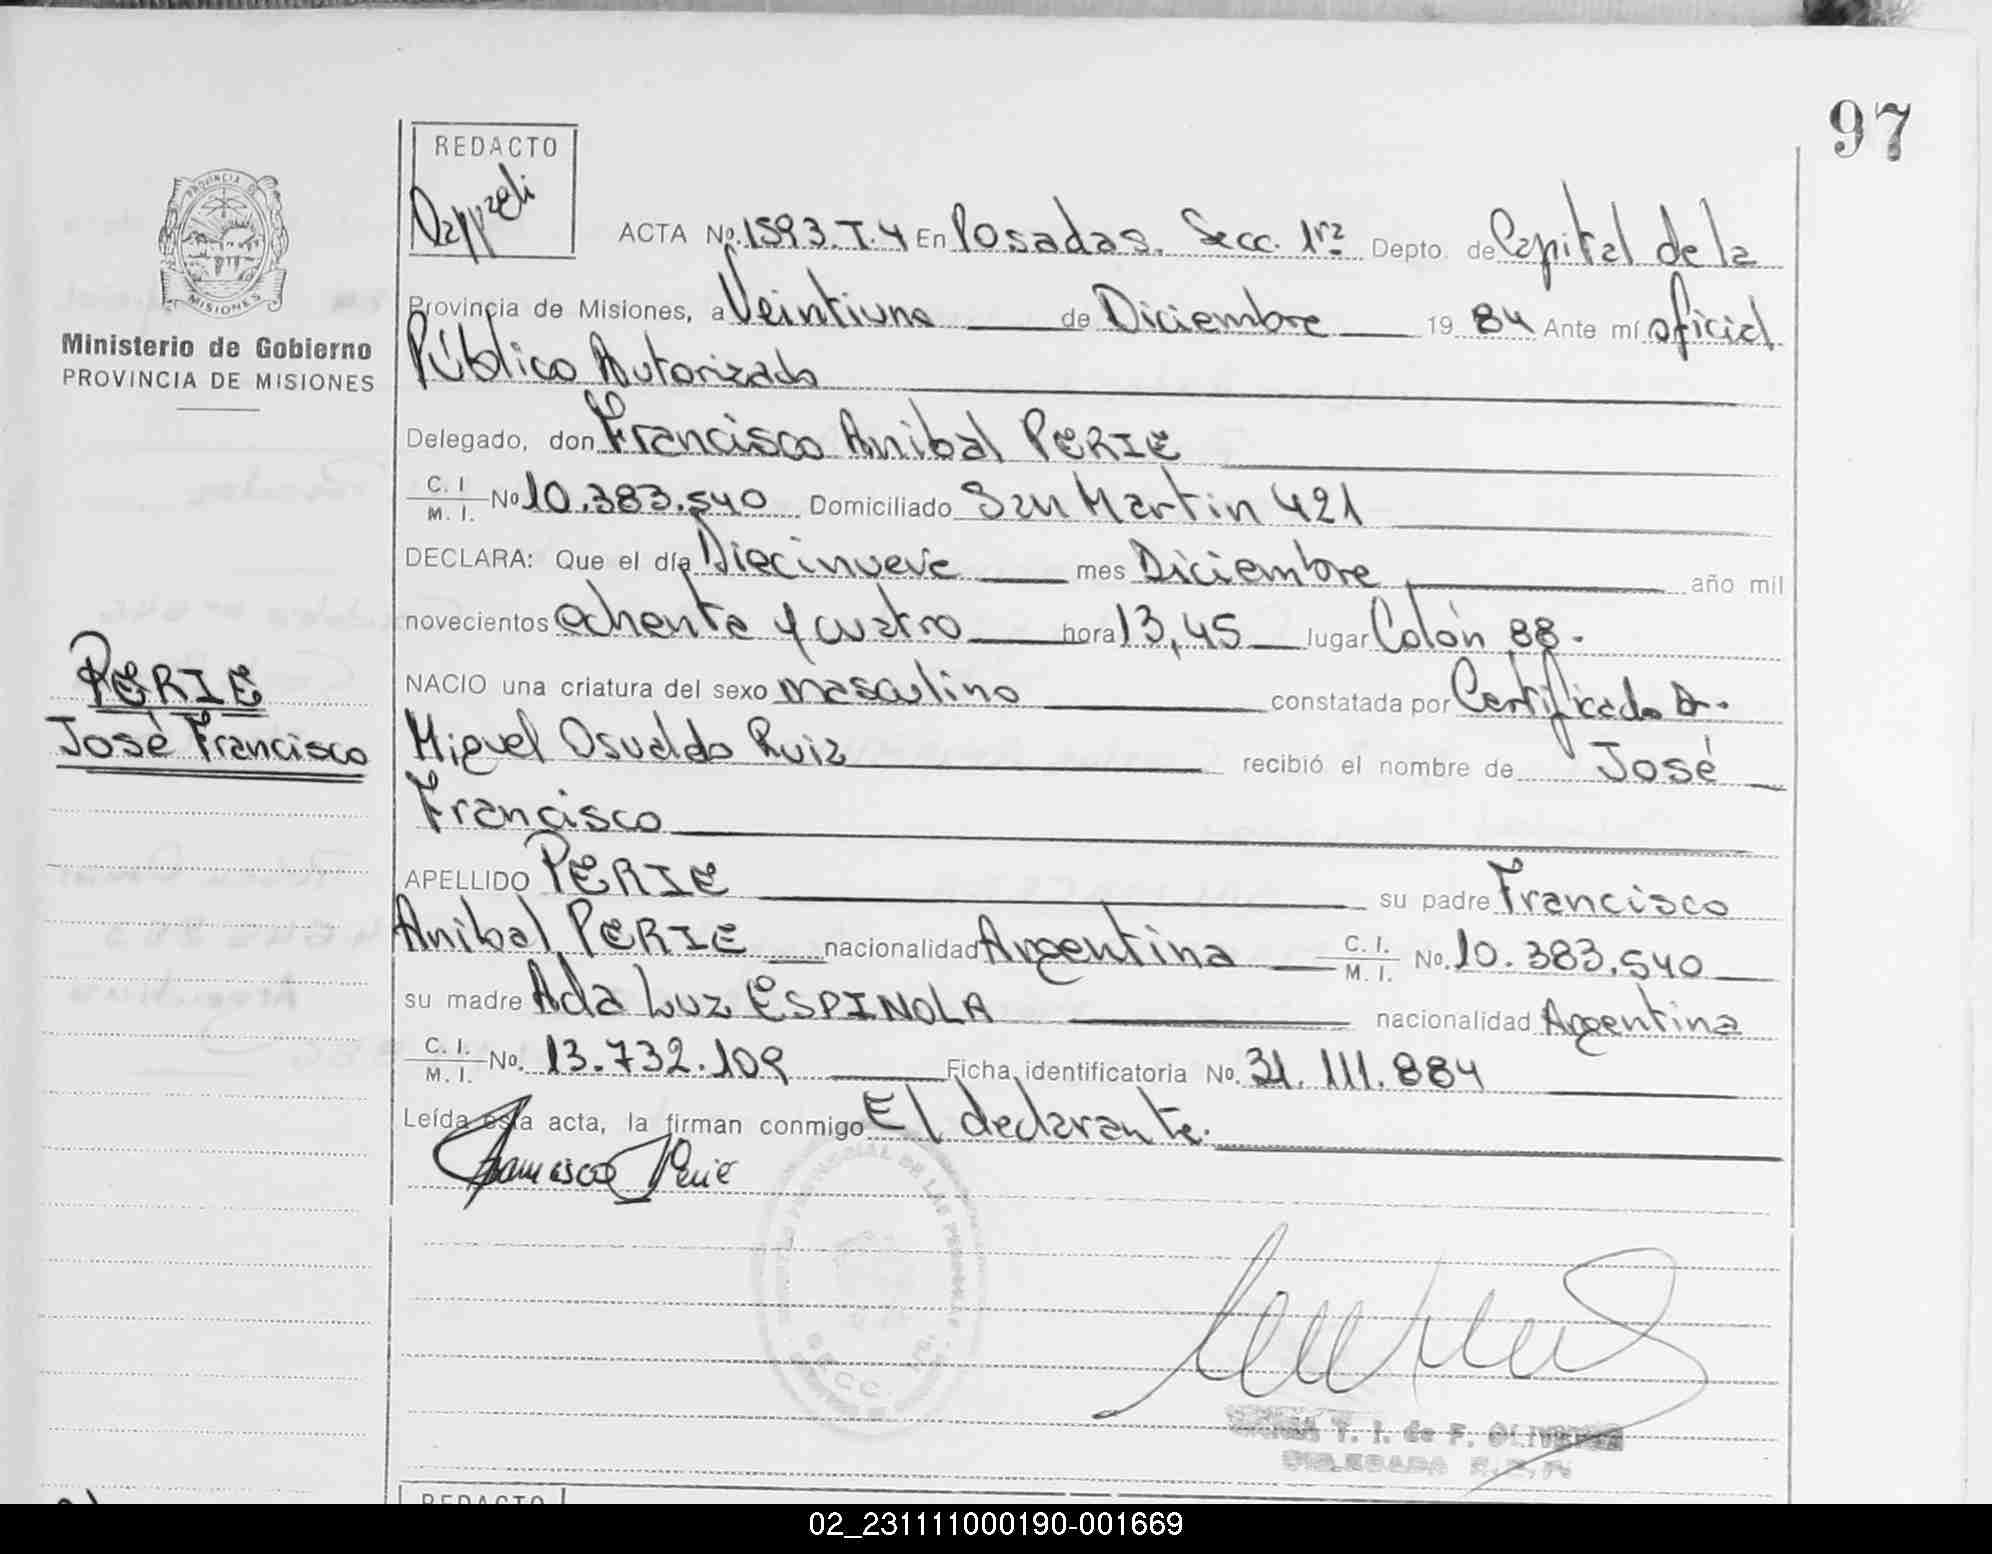 97
REDACTO
PROVINCIA DE
MISIONES
Ministerio de Gobierno
PROVINCIA DE MISIONES
ACTA No. 1593. T. 4 En Posadas. Secc. 1ra Depto. de Capital de la
Provincia de Misiones, a Veintiuno de Diciembre 19 84 Ante mí oficial
Público Autorizado
Delegado, don Francisco Anibal PERIE
C. I. M. I. No 10.383.540 Domiciliado San Martin 421
DECLARA: Que el día Diecinueve mes Diciembre año mil
novecientos ochenta y cuatro hora 13,45 lugar Colón 88.
NACIO una criatura del sexo masculino constatada por Certificado Dr.
PERIE
José Francisco
Miguel Osvaldo Ruiz recibió el nombre de José
Francisco
APELLIDO PERIE su padre Francisco
Anibal PERIE nacionalidad Argentina C. I. M. I. No. 10.383.540
su madre Ada Luz ESPINOLA nacionalidad Argentina
C. I. M. I. No. 13.732.109 Ficha identificatoria No. 31.111.884
Leída esta acta, la firman conmigo El declarante.
Francisco Perié
T. I. de F. OLIVEIRA
DELEGADA
REDACTO
02_231111000190-001669